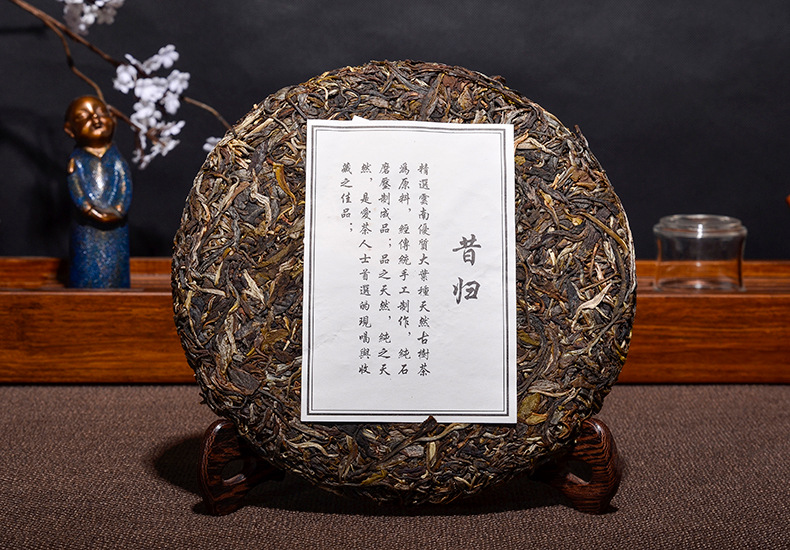 昔归
精選雲南優質大葉種天然古樹茶
為原料，經傳統手工制作，純石
磨壓制成品；品之天然，純之天
然，是愛茶人士首選的現喝與收
藏之佳品；